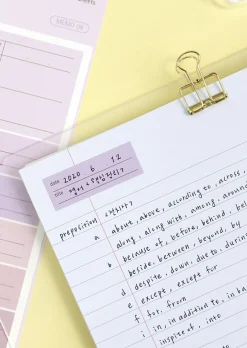 MEMO
date 2020 6 12
title
preposition
a about, above, according to, across,
along, along with, among, around
b because of, before, behind, bel
beside, between, beyond, by
d despite, down, due to, during
e except, except for
f for, from
i in, in addition to, in ba
inspite of, into